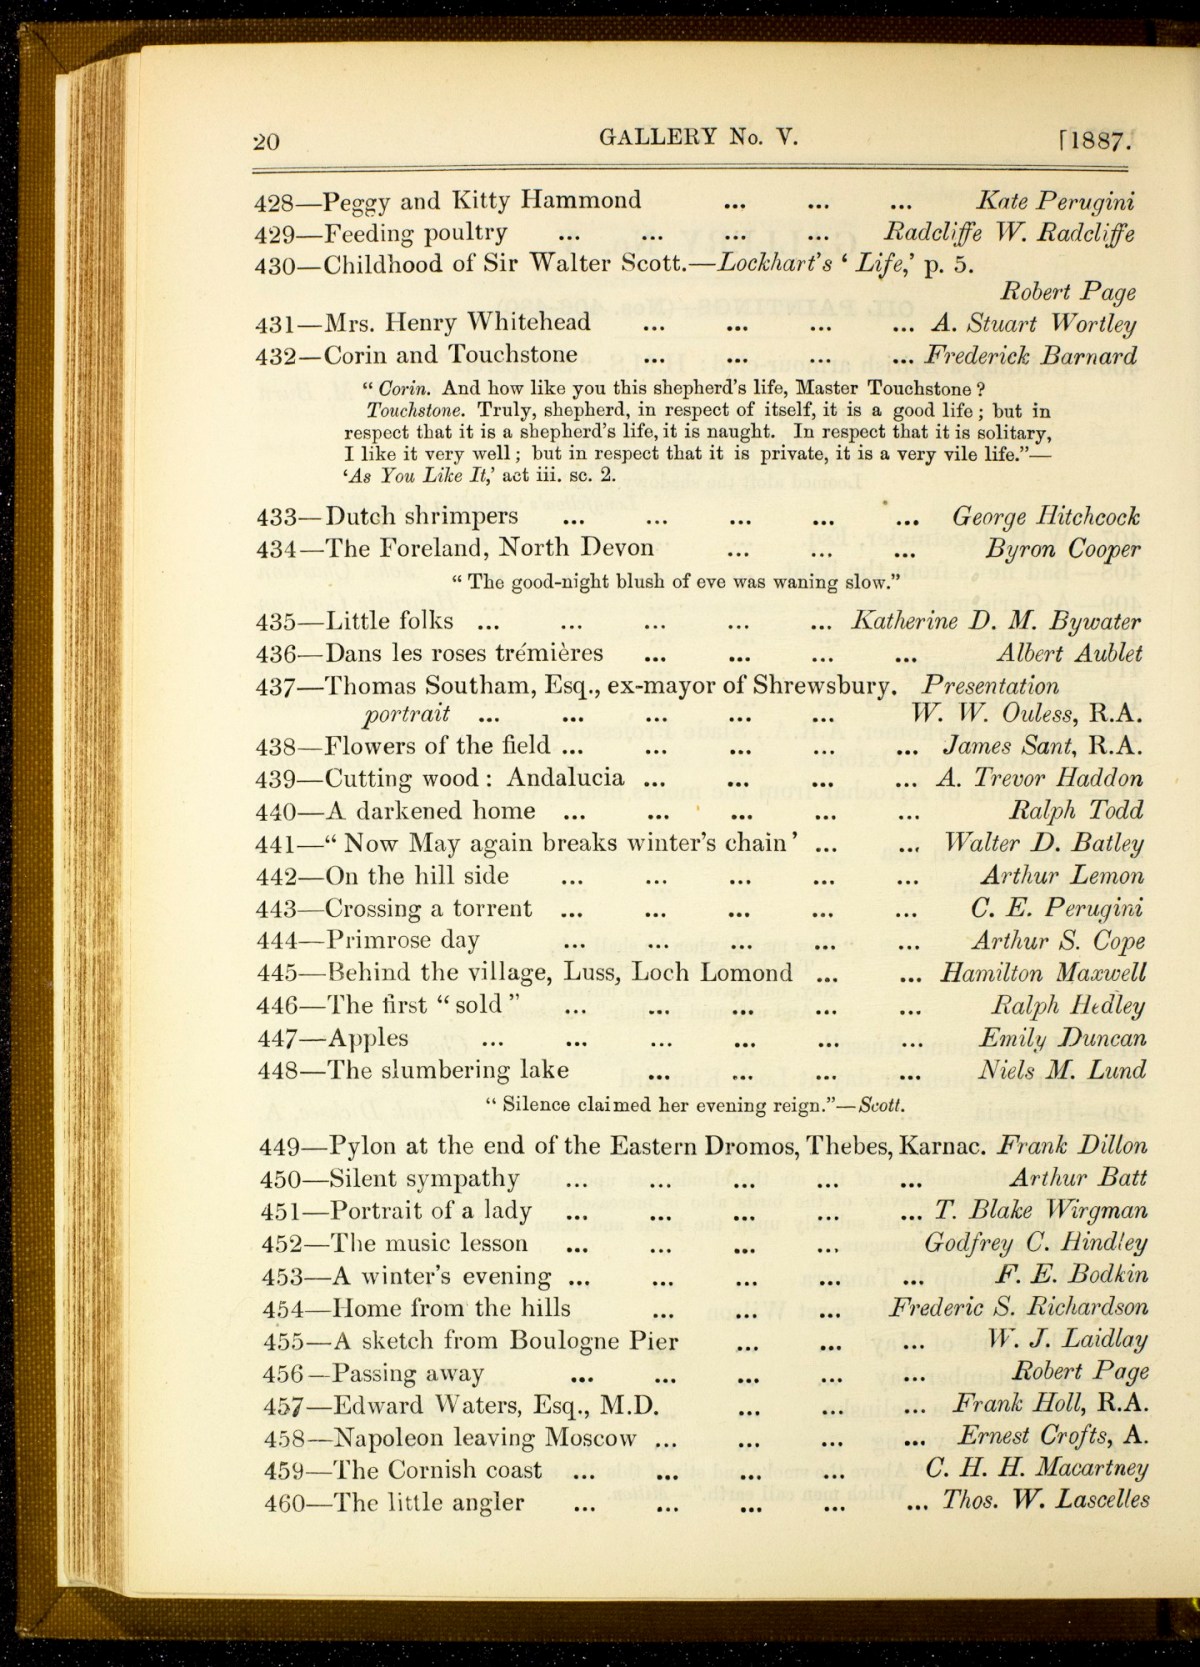 20 GALLERY No. V. [1887.
428—Peggy and Kitty Hammond ... ... ... Kate Perugini
429—Feeding poultry ... ... ... ... Radcliffe W. Radcliffe
430—Childhood of Sir Walter Scott.—Lockhart's ‘ Life,’ p. 5.
Robert Page
431—Mrs. Henry Whitehead ... ... ... ... A. Stuart Wortley
432—Corin and Touchstone ... ... ... ... Frederick Barnard
“ Corin. And how like you this shepherd's life, Master Touchstone ?
Touchstone. Truly, shepherd, in respect of itself, it is a good life ; but in
respect that it is a shepherd's life, it is naught. In respect that it is solitary,
I like it very well ; but in respect that it is private, it is a very vile life.”—
‘As You Like It,’ act iii. sc. 2.
433—Dutch shrimpers ... ... ... ... ... George Hitchcock
434—The Foreland, North Devon ... ... ... Byron Cooper
“ The good-night blush of eve was waning slow.”
435—Little folks ... ... ... ... ... Katherine D. M. Bywater
436—Dans les roses trémières ... ... ... ... Albert Aublet
437—Thomas Southam, Esq., ex-mayor of Shrewsbury. Presentation
portrait ... ... ... ... ... W. W. Ouless, R.A.
438—Flowers of the field ... ... ... ... ... James Sant, R.A.
439—Cutting wood : Andalucia ... ... ... ... A. Trevor Haddon
440—A darkened home ... ... ... ... ... Ralph Todd
441—“ Now May again breaks winter's chain ’ ... ... Walter D. Batley
442—On the hill side ... ... ... ... ... Arthur Lemon
443—Crossing a torrent ... ... ... ... ... C. E. Perugini
444—Primrose day ... ... ... ... ... Arthur S. Cope
445—Behind the village, Luss, Loch Lomond ... ... Hamilton Maxwell
446—The first “ sold ” ... ... ... ... ... Ralph Hedley
447—Apples ... ... ... ... ... ... Emily Duncan
448—The slumbering lake ... ... ... ... Niels M. Lund
“ Silence claimed her evening reign.”—Scott.
449—Pylon at the end of the Eastern Dromos, Thebes, Karnac. Frank Dillon
450—Silent sympathy ... ... ... ... ... Arthur Batt
451—Portrait of a lady ... ... ... ... ... T. Blake Wirgman
452—The music lesson ... ... ... ... Godfrey C. Hindley
453—A winter's evening ... ... ... ... ... F. E. Bodkin
454—Home from the hills ... ... ... Frederic S. Richardson
455—A sketch from Boulogne Pier ... ... ... W. J. Laidlay
456—Passing away ... ... ... ... ... Robert Page
457—Edward Waters, Esq., M.D. ... ... ... Frank Holl, R.A.
458—Napoleon leaving Moscow ... ... ... ... Ernest Crofts, A.
459—The Cornish coast ... ... ... ... C. H. H. Macartney
460—The little angler ... ... ... ... ... Thos. W. Lascelles